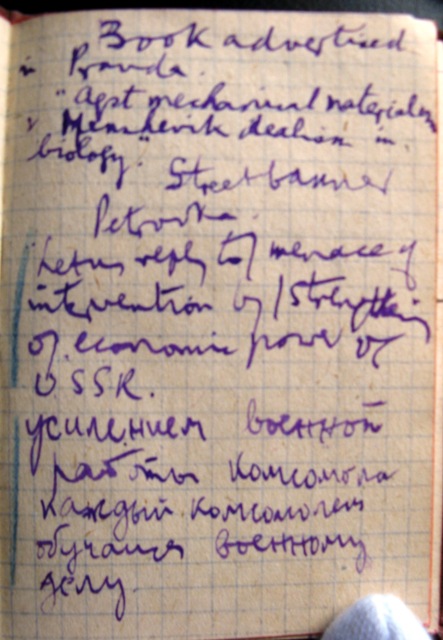 Book advertised
in Pravda.
"Agst mechanical materialism
& Menshevik idealism in
biology."
Street banner
Petrovka.
"Let us reply to menace of
intervention by strengthening
of economic power of
USSR.
усилением военной
работы комсомола
каждый комсомолец
обучайся военному
делу.